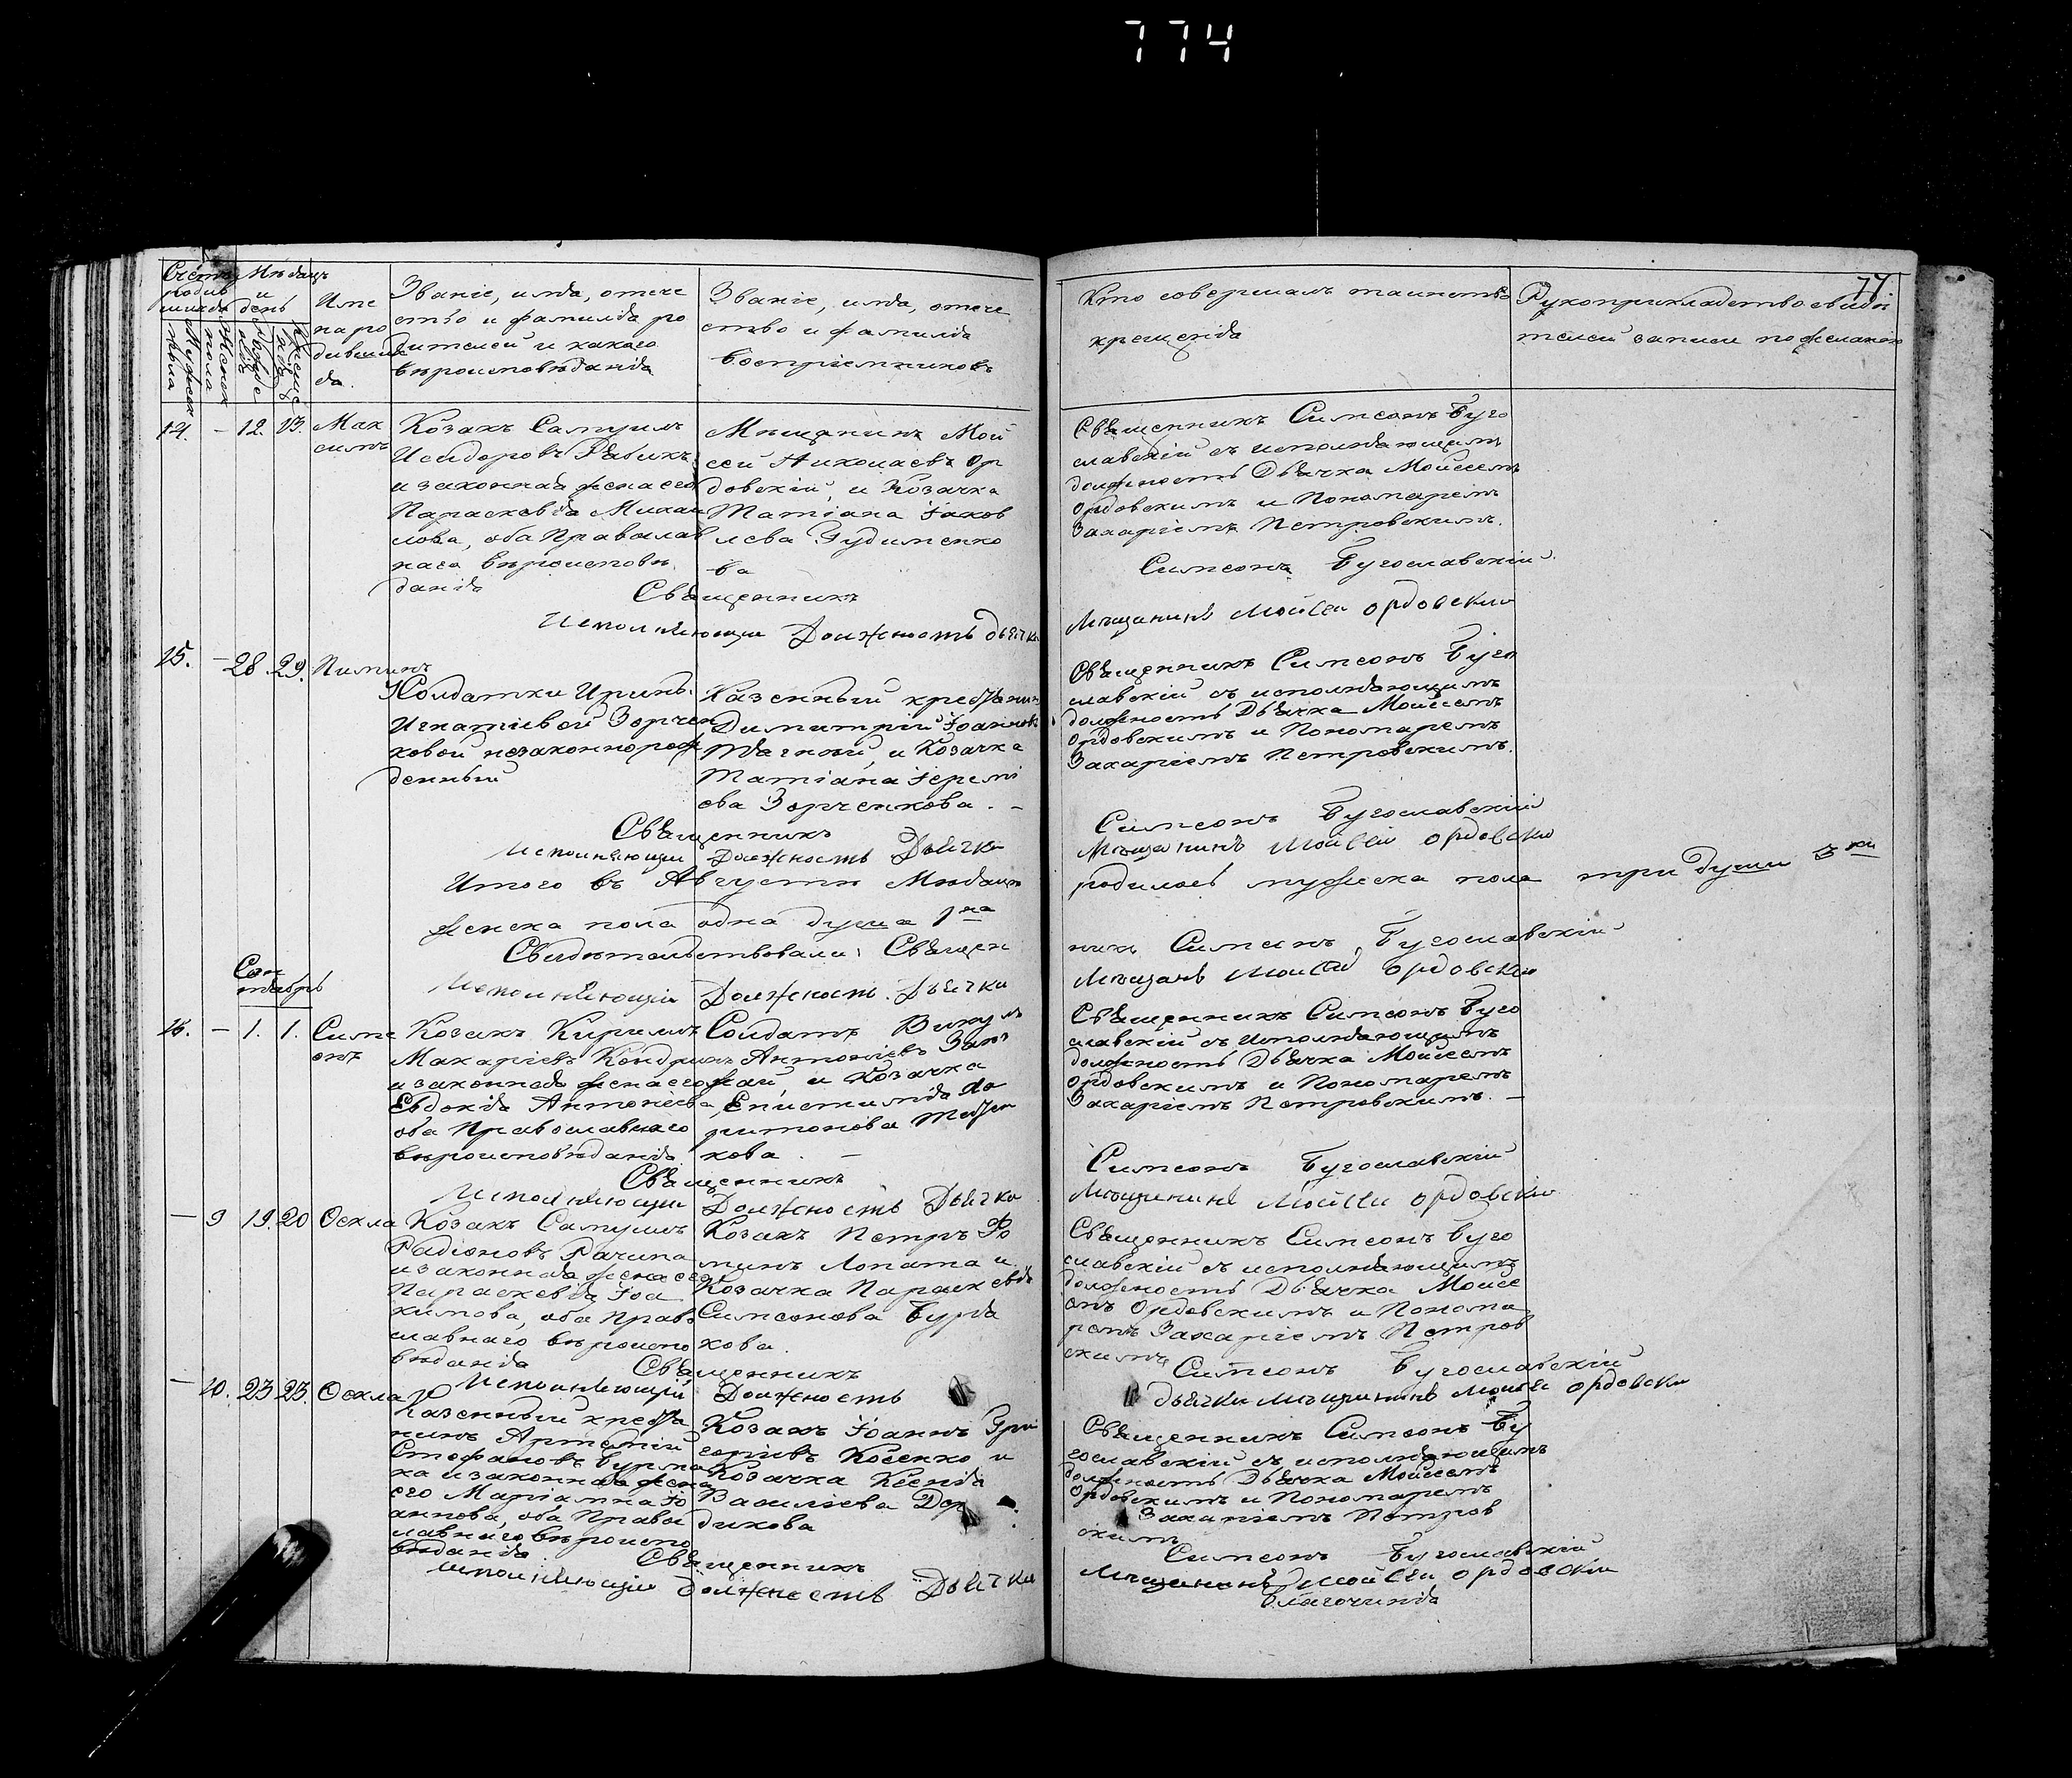 774
77.
Счетъ родив шихся
Мѣсяцъ и день
Мужеск пола
Женск пола
Имя
наро
дивших
ся.
Званіе, имя, отече
ство и фамилія ро
дителей и какого
вѣроисповѣданія
Званіе, имя, отече
ство и фамилія
воспріемниковъ
Кто совершалъ таинство
крещенія
Рукоприкладство свидѣ
телей записи по желанію
14. – 12. 13.
Мак
симъ
Козакъ Самуилъ
Исидоровъ Рябикъ
и законная жена его
Параскевія Михаи
лова, оба Православ
наго вѣроисповѣ
данія
Мѣщанинъ Мои
сей Николаевъ Ор
довскій, и Козачка
Татіана Іаков
лева Гудименко
ва
Священникъ Симеонъ Буго
славскій съ исполняющимъ
должность Дьячка Мойсеемъ
Ордовскимъ и Пономаремъ
Захаріемъ Петровскимъ.
Священникъ Симеонъ Бугославскій
Исполняющи Должность дьячка Мѣщанинъ Мойсей Ордовскии
15. – 28. 29. Пиминъ
Солдатки Ирины
Игнатіевой Зорчен
ковой незаконнорож
денный
Казенный крестянинъ
Димитрій Іоанновъ
Ткачной, и Козачка
Татіана Іеремі
ева Зорченкова. –
Священникъ Симеонъ Буго
славскій съ исполняющимъ
должность Дьячка Мойсеемъ
Ордовскимъ и Пономаремъ
Захаріемъ Петровскимъ.
Священникъ Симеонъ Бугославскій
Исполняющи Должность Дьячка Мѣщанинъ Мойсей Ордовскии
Итого въ Августѣ Мѣсяцѣ родилось мужеска пола три души 3 ри
женска пола одна душа 1 на
Свидѣтельствовали: Священ никъ Симеонъ Бугославскій
Исполняющій Должность. Дьячка Мѣщанъ Мойсей Ордовскии
Сен
тябрь
16. – 1. 1.
Симе
онъ
Козакъ Кирилъ
Макаріевъ Кондри
и законная жена его
Евдокія Антонеева
оба Православнаго
вѣроисповѣданія
Солдатъ Викулъ
Антоніевъ
и Козачка
Епистимія
ритонова
кова. –
Священникъ Симеонъ Буго
славскій съ исполняющимъ
должность Дьячка Мойсеемъ
Ордовскимъ и Пономаремъ
Захаріемъ Петровскимъ. –
Священникъ Симеонъ Бугославскій
Исполняющи Должность Дьячка Мѣщанинъ Мойсеи Ордовскии
– 9 19. 20 Оекла
Козакъ Самуилъ
Радіоновъ Рачипа
и законная жена его
Параскевія Іоа
кимова, оба Право
славнаго вѣроиспо
вѣданія
Козакъ Петръ Фо
минъ Лопата и
Козачка Параскевія
Симеонова Бурля
кова.
Священникъ Симеонъ Буго
славскій съ исполняющимъ
должность Дьячка Мойсе
омъ Ордовскимъ и Понома
ремъ Захаріемъ Петров
скимъ
Священникъ Симеонъ Бугославскій
Исполняющій Должность дьячка Мѣщанинъ Мойсеи Ордовски
– 10. 23 23. Оекла
Казенный крестя
нинъ Артемій
Стефановъ Бурла
ка и законная жена
его Маріамна Іо
аннова, оба Право
славнаго вѣроиспо
вѣданія
Козакъ Іоаннъ Гри
горіевъ Косенко и
Козачка Ксенія
Василіева
дикова
Священникъ Симеонъ Бу
гославскій съ исполняющимъ
должность Дьячка Мойсеемъ
Ордовскимъ и Пономаремъ
Захаріемъ Петров
скимъ
Священникъ Симеонъ Бугославскій
Исполняющи Должность Дьячка Мѣщанинъ Мойсеи Ордовски
благочинія